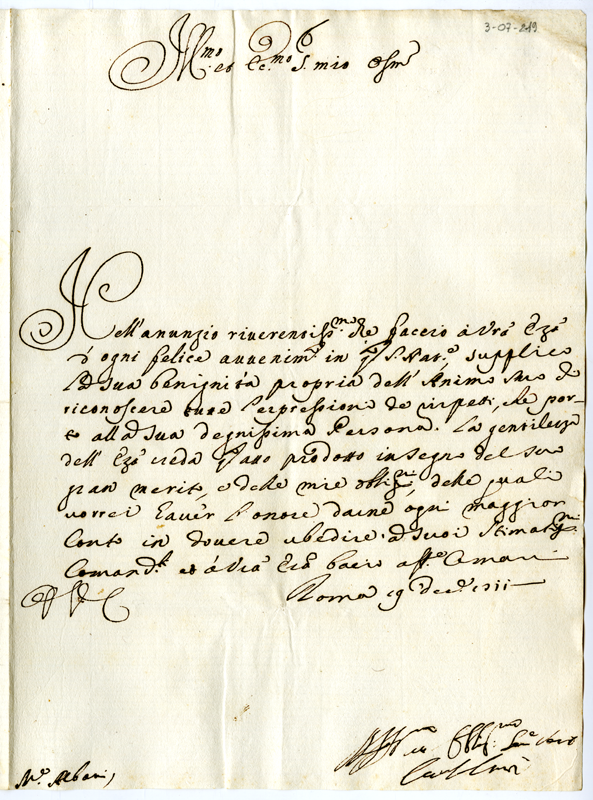 3-07-219
Ill.mo et Ecc.mo S. mio Oss.mo
Nell'anunzio riverentiss.mo che faccio à Vrã Ecc.a
d'ogni felice avvenim.to in q.to S. Nat.e supplico
la sua benignità propria dell'Animo suo di
riconoscere tutte l'espressioni de rispetti, che por-
to alla sua degnissima Persona. La gentilezza
dell' Ecc.a creda prodotto in segno del suo
gran merito, e delle mie obblig.ni, delle quali
vorrei haver l'onore darne ogni maggior
conto in dovere ubedire a suoi stimat.mi
Comand.ti et à Vrã Ecc.a bacio aff.te le mani
Roma 19 Dec.e
Aff.mo Obblig.mo Ser.e vero
N.o Albani,